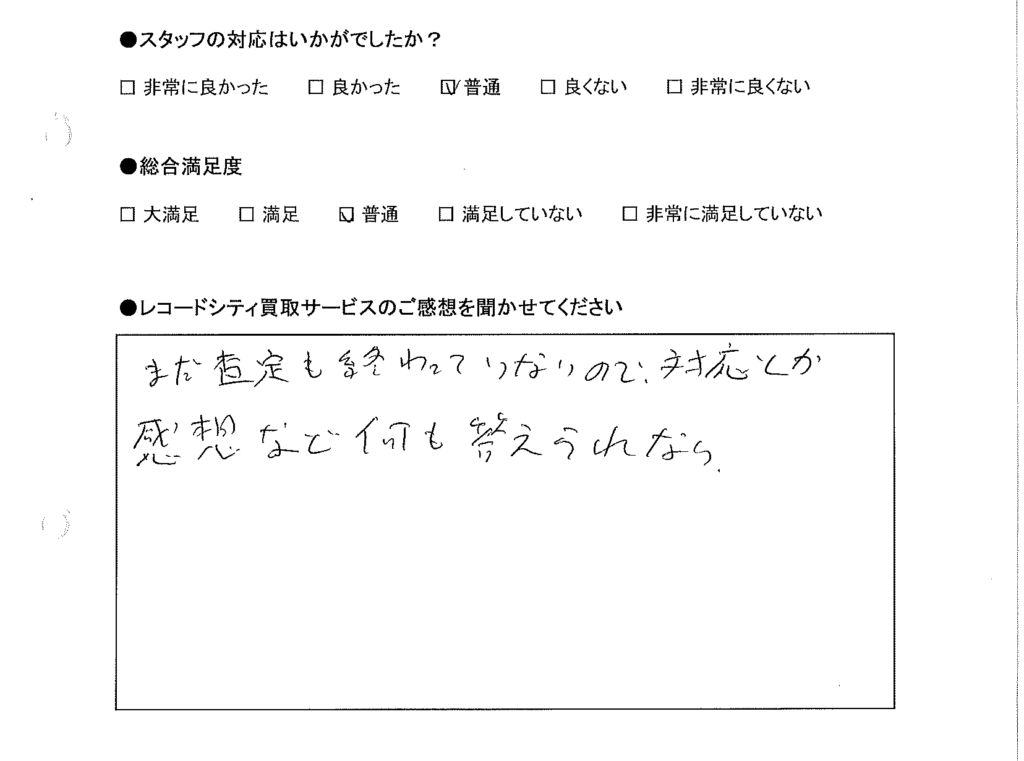 ●スタッフの対応はいかがでしたか？
□ 非常に良かった □ 良かった ☑ 普通 □ 良くない □ 非常に良くない
●総合満足度
□ 大満足 □ 満足 ☑ 普通 □ 満足していない □ 非常に満足していない
●レコードシティ買取サービスのご感想を聞かせてください
まだ査定も終わっていないので、対応とか
感想など何も答えられない。